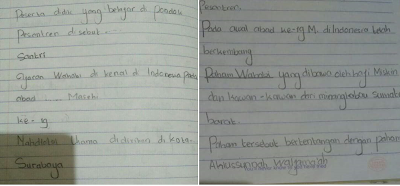 Peserta didik yang belajar di Pondok
Pesantren disebut...
Santri
Ajaran Wahabi di kenal di Indonesia Pada
abad ... Masehi
ke-19
Nahdlatul Ulama didirikan di kota...
Surabaya
Pesantren.
Pada awal abad ke-19 M. di Indonesia telah
berkembang
Paham Wahabi yang dibawa oleh Haji Miskin
dan kawan-kawan dari minangkabau Sumatera
barat.
Paham tersebut bertentangan dengan paham
Ahlussunnah Waljamaah